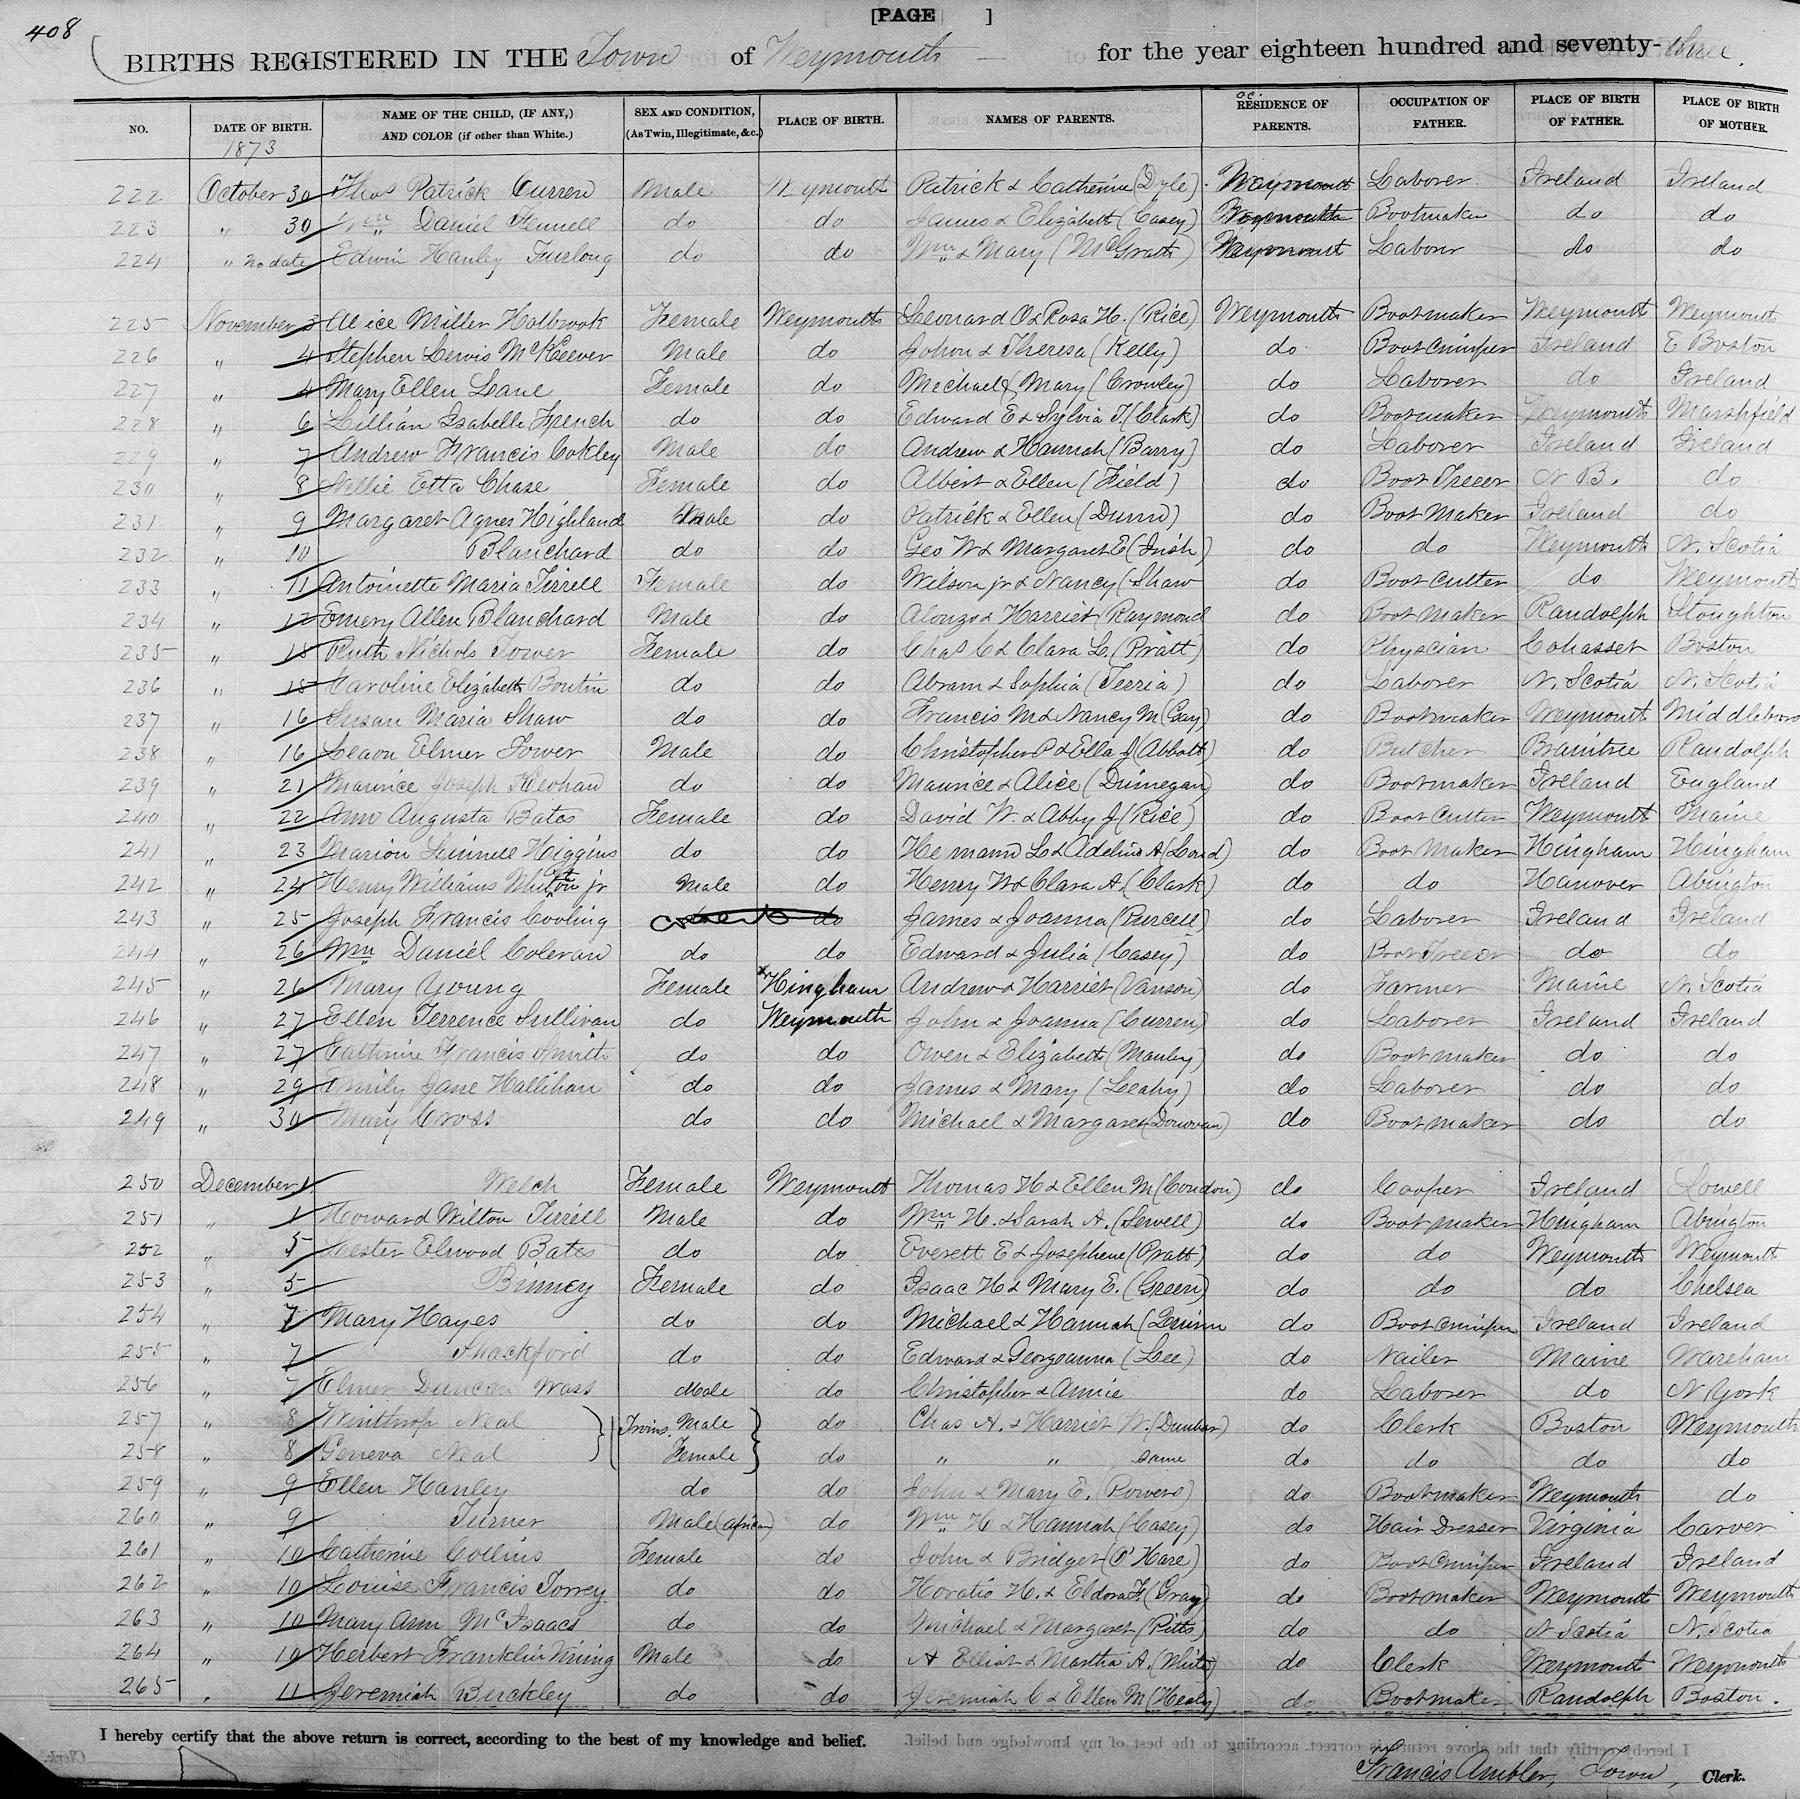 408
[PAGE ]
BIRTHS REGISTERED IN THE Town of Weymouth — for the year eighteen hundred and seventy-three.
NO. DATE OF BIRTH. NAME OF THE CHILD, (IF ANY,) AND COLOR (if other than White.) SEX AND CONDITION, (As Twin, Illegitimate, &c.) PLACE OF BIRTH. NAMES OF PARENTS. RESIDENCE OF PARENTS. OCCUPATION OF FATHER. PLACE OF BIRTH OF FATHER. PLACE OF BIRTH OF MOTHER.
1873
222 October 30 Thos Patrick Curren Male Weymouth Patrick & Catherine (Dyle) Weymouth Laborer Ireland Ireland
223 " 30 Wm Daniel Fennell do do James & Elizabeth (Casey) Weymouth Bootmaker do do
224 " no date Edwin Hanley Furlong do do Wm & Mary (McGrath) Weymouth Laborer do do
225 November 3 Alice Miller Holbrook Female Weymouth Leonard O & Rosa H. (Rice) Weymouth Bootmaker Weymouth Weymouth
226 " 4 Stephen Lewis McKeever Male do John & Theresa (Kelly) do Boot Crimper Ireland E Boston
227 " 4 Mary Ellen Lane Female do Michael & Mary (Crowley) do Laborer do Ireland
228 " 6 Lillian Isabelle French do do Edward E & Sylvia T (Clark) do Bootmaker Weymouth Marshfield
229 " 7 Andrew Francis Cokley Male do Andrew & Hannah (Barry) do Laborer Ireland Ireland
230 " 8 Nellie Etta Chase Female do Albert & Ellen (Field) do Boot Treer N B. do
231 " 9 Margaret Agnes Highland Male do Patrick & Ellen (Dunn) do Boot Maker Ireland do
232 " 10 Blanchard do do Geo W & Margaret E (Irish) do do Weymouth N. Scotia
233 " 11 Antoinette Maria Tirrell Female do Wilson jr & Nancy (Shaw do Boot Cutter do Weymouth
234 " 12 Emery Allen Blanchard Male do Alonzo & Harriet (Raymond do Boot Maker Randolph Stoughton
235 " 15 Ruth Nichols Tower Female do Chas C & Clara L. (Pratt) do Physcian Cohasset Boston
236 " 15 Caroline Elizabeth Boutin do do Abram & Sophia (Terria) do Laborer N. Scotia N. Scotia
237 " 16 Susan Maria Shaw do do Francis M & Nancy M (Gay) do Bootmaker Weymouth Middleboro
238 " 16 Leavon Elmer Tower Male do Christopher P & Ella J (Abbott) do Butcher Braintree Randolph
239 " 21 Maurice Joseph Keohan do do Maurice & Alice (Dunnegan) do Bootmaker Ireland England
240 " 22 Ann Augusta Bates Female do David W. & Abby J (Rice) do Boot Cutter Weymouth Maine
241 " 23 Marion Linnell Higgins do do Hemann L & Adeline A (Loud) do Boot Maker Hingham Hingham
242 " 24 Henry Williams Whiton jr Male do Henry W & Clara A. (Clark) do do Hanover Abington
243 " 25 Joseph Francis Cooling do James & Joanna (Purcell) do Laborer Ireland Ireland
244 " 26 Wm Daniel Coleran do do Edward & Julia (Casey) do Boot Treeor do do
245 " 26 Mary Young Female x Hingham Andrew & Harriet (Vanson) do Farmer Maine N. Scotia
246 " 27 Ellen Terrence Sullivan do Weymouth John & Joanna (Curren) do Laborer Ireland Ireland
247 " 27 Catherine Francis Smith do do Owen & Elizabeth (Manley) do Bootmaker do do
248 " 29 Emily Jane Hallihan do do James & Mary (Leahy) do Laborer do do
249 " 30 Mary Cross do do Michael & Margaret (Donovan) do Bootmaker do do
250 December 1 Welch Female Weymouth Thomas H & Ellen M (Condon) do Cooper Ireland Lowell
251 " 1 Howard Wilton Tirrell Male do Wm H. & Sarah A. (Sewell) do Bootmaker Hingham Abington
252 " 5 Lester Elwood Bates do do Everett E & Josephene (Pratt) do do Weymouth Weymouth
253 " 5 Binney Female do Isaac H & Mary E. (Green) do do do Chelsea
254 " 7 Mary Hayes do do Michael & Hannah (Quinn do Boot Crimper Ireland Ireland
255 " 7 Shackford do do Edward & Georgeanna (Lee) do Nailer Maine Wareham
256 " 7 Elmer Duncan Wass Male do Christopher & Annie do Laborer do N York
257 " 8 Winthrop Neal Twins. Male do Chas A. & Harriet W. (Dunbar) do Clerk Boston Weymouth
258 " 8 Geneva Neal Female do " " same do do do do
259 " 9 Ellen Hanley do do John & Mary E. (Powers) do Bootmaker Weymouth do
260 " 9 Turner Male (African) do Wm H & Hannah (Casey) do Hair Dresser Virginia Carver
261 " 10 Catherine Collins Female do John & Bridget (O'Hare) do Boot Crimper Ireland Ireland
262 " 10 Louise Francis Torrey do do Horatio H. & Eldora F. (Gray) do Bootmaker Weymouth Weymouth
263 " 10 Mary Ann McIsaacs do do Michael & Margaret (Pitts) do do N Scotia N. Scotia
264 " 10 Herbert Franklin Vining Male do A Elliot & Martha A. (White) do Clerk Weymouth Weymouth
265 " 11 Jeremiah Buckley do do Jeremiah C & Ellen M (Healy) do Bootmaker Randolph Boston.
I hereby certify that the above return is correct, according to the best of my knowledge and belief.
Francis Ambler, Town, Clerk.